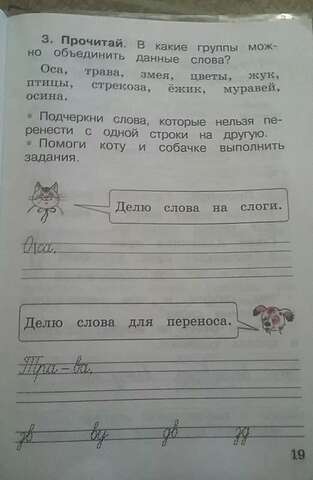 3. Прочитай. В какие группы мож-
но объединить данные слова?
Оса, трава, змея, цветы, жук,
птицы, стрекоза, ёжик, муравей,
осина.
• Подчеркни слова, которые нельзя пе-
ренести с одной строки на другую.
• Помоги коту и собачке выполнить
задания.
Делю слова на слоги.
Оса,
Делю слова для переноса.
Тра-ва,
зв ву дв зд
19